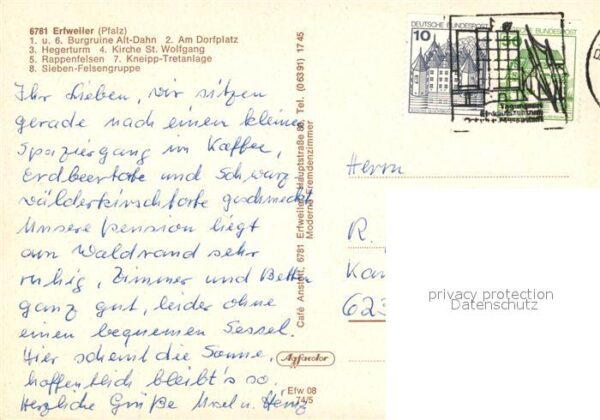 6781 Erfweiler (Pfalz)
1. u. 6. Burgruine Alt-Dahn 2. Am Dorfplatz
3. Hegerturm 4. Kirche St. Wolfgang
5. Rappenfelsen 7. Kneipp-Tretanlage
8. Sieben-Felsengruppe
Ihr Lieben, wir sitzen
gerade nach einen kleinen
Spaziergang im Kaffee,
Erdbeertorte und Schwarz-
wälderkirschtorte geschmeckt
Unsere Pension liegt
am Waldrand sehr
ruhig, Zimmer und Betten
ganz gut, leider ohne
einen bequemen Sessel.
Hier scheint die Sonne,
hoffentlich bleibt's so.
Herzliche Grüße Ursel u. Heinz
Café Anstett, 6781 Erfweiler, Hauptstraße 86, Tel. (0 63 91) 17 45
Moderne Fremdenzimmer
Agfacolor
Efw 08
74/5
DEUTSCHE BUNDESPOST
10
BUNDESPOST
Tagungsort
Einkaufszentrum
Herrn
R.
Kan
623
privacy protection
Datenschutz